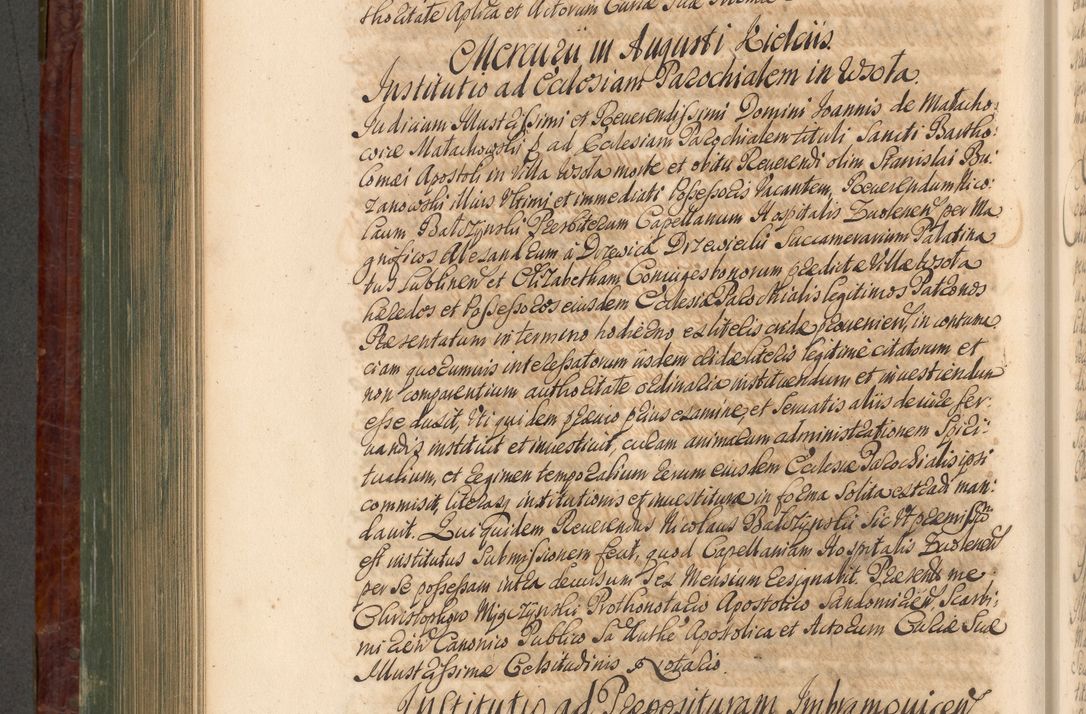 thoritate Aplica et Actorum Curiæ Suæ
Mercurii III Augusti Kielciis.
Institutio ad Ecclesiam Parochialem in Wsola.
Judicium Illustrissimi et Reverendissimi Domini Joannis de Małacho:
wice Małachowski ad Ecclesiam Parochialem tituli Sancti Bartho:
lomæi Apostoli, in Villa Wsola morte et obitu Reverendi olim Stanislai Bu:
zanowski illius ultimi et immediati Possessoris Vacantem, Reverendum Nico:
laum Balczynski Presbiterum Capellanum Hospitalis Zwolenen per Ma
gnificos Alexandrum à Drzewica Drzewiecki Succamerarium Palatina
tus Lublinen et Elizabetham Coniuges bonorum prædictæ Villæ Wsola
hæredes et Possessores eiusdem Ecclesiæ Parochialis legitimos Patronos
Præsentatum in termino hodierno ex literis cridæ provenien, in contuma
ciam quorumvis interessatorum iisdem cridæ literis legitimè citatorum et
non comparentium authoritate ordinaria instituendum et investiendum
esse duxit, Uti quidem prævio prius examine, et servatis aliis de iure ser:
vandis instituit et investivit, curam animarum administrationem Spiri:
tualium, et regimen temporalium rerum eiusdem Ecclesiæ Parochialis ipsi
commisit, literasq institutionis et investituræ in forma solita extradi man:
davit. Qui quidem Reverendus Nicolaus Balczynski sic ut præmissum
est institutus submissionem fecit, quod Capellaniam Hospitalis Zwolenen
per se possessam intra decursum Sex Mensium resignabit. Præsente me
Christophoro Prothonotario Apostolico Sandomirien, Scarbi:
mirien Canonico Publico Sa Authe Apostolica et Actorum Curiæ Suæ
Illustrissimæ Celsitudinis Notario
Institutio ad Præposituram Imbramovicen